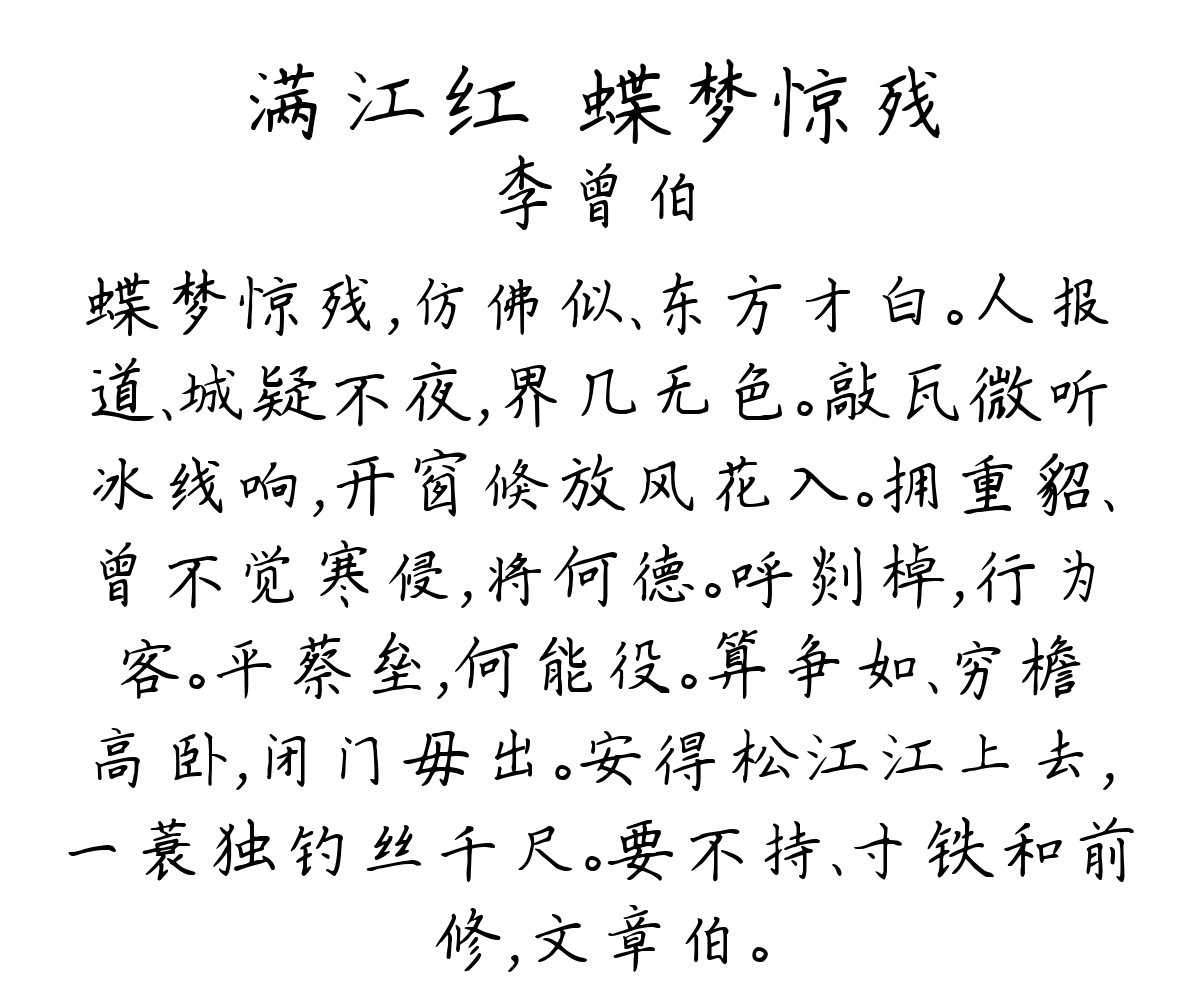 满江红 蝶梦惊残
李曾伯
蝶梦惊残,仿佛似、东方才白。人报
道、城疑不夜,界几无色。敲瓦微听
冰线响,开窗倏放风花入。拥重貂、
曾不觉寒侵,将何德。呼剡棹,行为
客。平蔡垒,何能役。算争如、穷檐
高卧,闭门毋出。安得松江江上去,
一蓑独钓丝千尺。要不持、寸铁和前
修,文章伯。